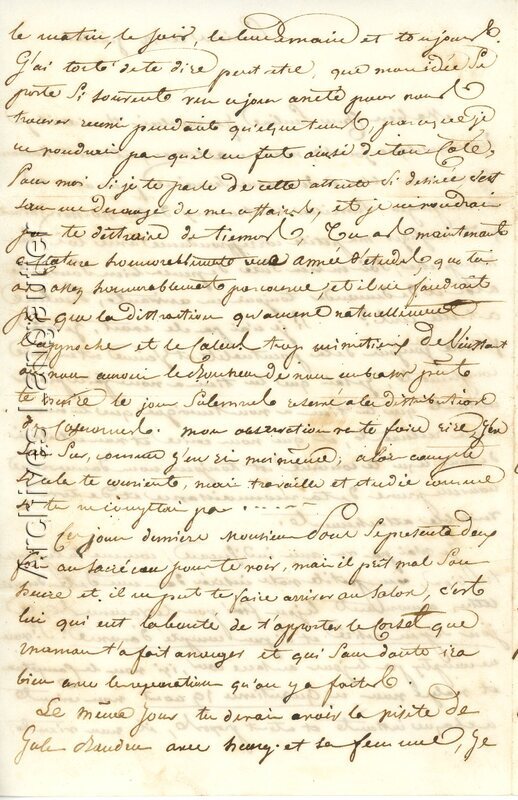 le matin, le soir, le lendemain et toujours.
J'ai torté de te dire peut etre, que mon idée Se
porte Si souvent vers ce jour arreté pour nous
trouver reuni pendant quelque tems, parceque je
ne voudrai pas qu'il en fut ainsi de ton Coté,
Pour moi Si je te parle de cette attente Si desirée c'est
sans me deranger de mes affaires, et je ne voudrai
pas te distraire de tienes, Tu as maintenant
cloture honnorablement une année d'etudes, que tu
as assez honnorablement parcourue, et il ne faudrait
pas que la distraction qu'amene naturellement
l'approche et le Calcul trop minutieux de l'instant
ou nous aurons le Bonheur de nous embrasser
le jour Solemnel reservé a la distribution
des Couronnes. mon observation va te faire rire, j'en
Suis Sur, comme j'en ris moi même, a bon compte
Si cela te convient, mais travaille et etudie comme
Si tu ne comptais pas . - - - -
Ces jours derniers Monsieur Se presenta deux
fois au sacré coeur pour te voir, mais il prit mal Son
heure et il ne put te faire arriver au Salon, c'est
lui qui eut la bonté de t'apporter le Corset que
maman t'a fait arranger et qui Sans doute ira
bien avec les reparations qu'on y a faites.
Le même jour tu devais avoir la visite de
avec henry et sa femme, Je
Archives Hangauffer